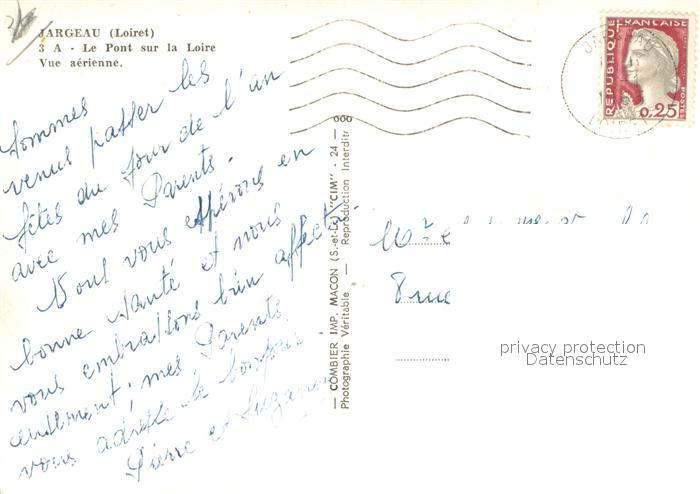 JARGEAU (Loiret)
3 A - Le Pont sur la Loire
Vue aérienne.
Sommes
venus passer les
fêtes du Jour de l'an
avec mes Parents.
Vous vous espérons en
bonne santé et nous
vous embrassons bien affect
eusement. mes Parents
vous adresse le bonjour.
Pierre et Suzanne
— COMBIER IMP. MACON (S.-et-L.) "CIM" - 24 —
Photographie Véritable — Reproduction Interdite
REPUBLIQUE FRANÇAISE
0,25
POSTES
8 rue
privacy protection
Datenschutz